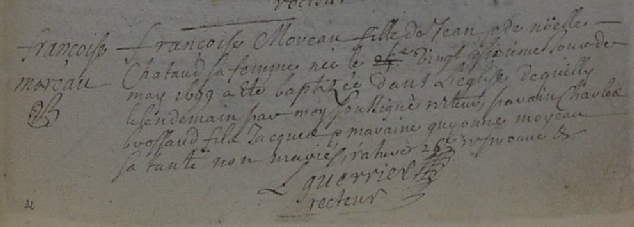 recteur
françoise
moreau
françoise Moreau fille de Jean & de nöelle
Chataud sa femme née le vingt sixieme Jour de
may 1689 a été baptizée dans L'eglise de quilly
le lendemain par moy soussigné recteur parain Charles
brossaud fils Jacques & maraine guyonne moreau
sa tante non mariés, rature 26e approuvé &
L guerrier
recteur
32